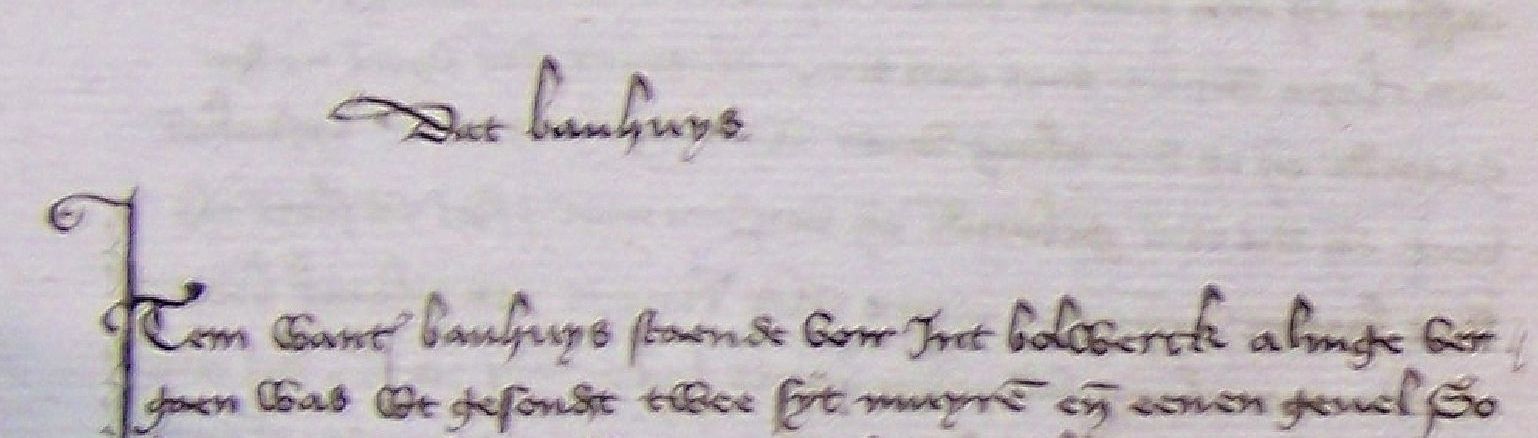 Dat bauhuys
Item want bauhuys staende voir Int bolwerck alinge ver
gaen was wt gesondt twee syt muyrē eñ eenen geuel So